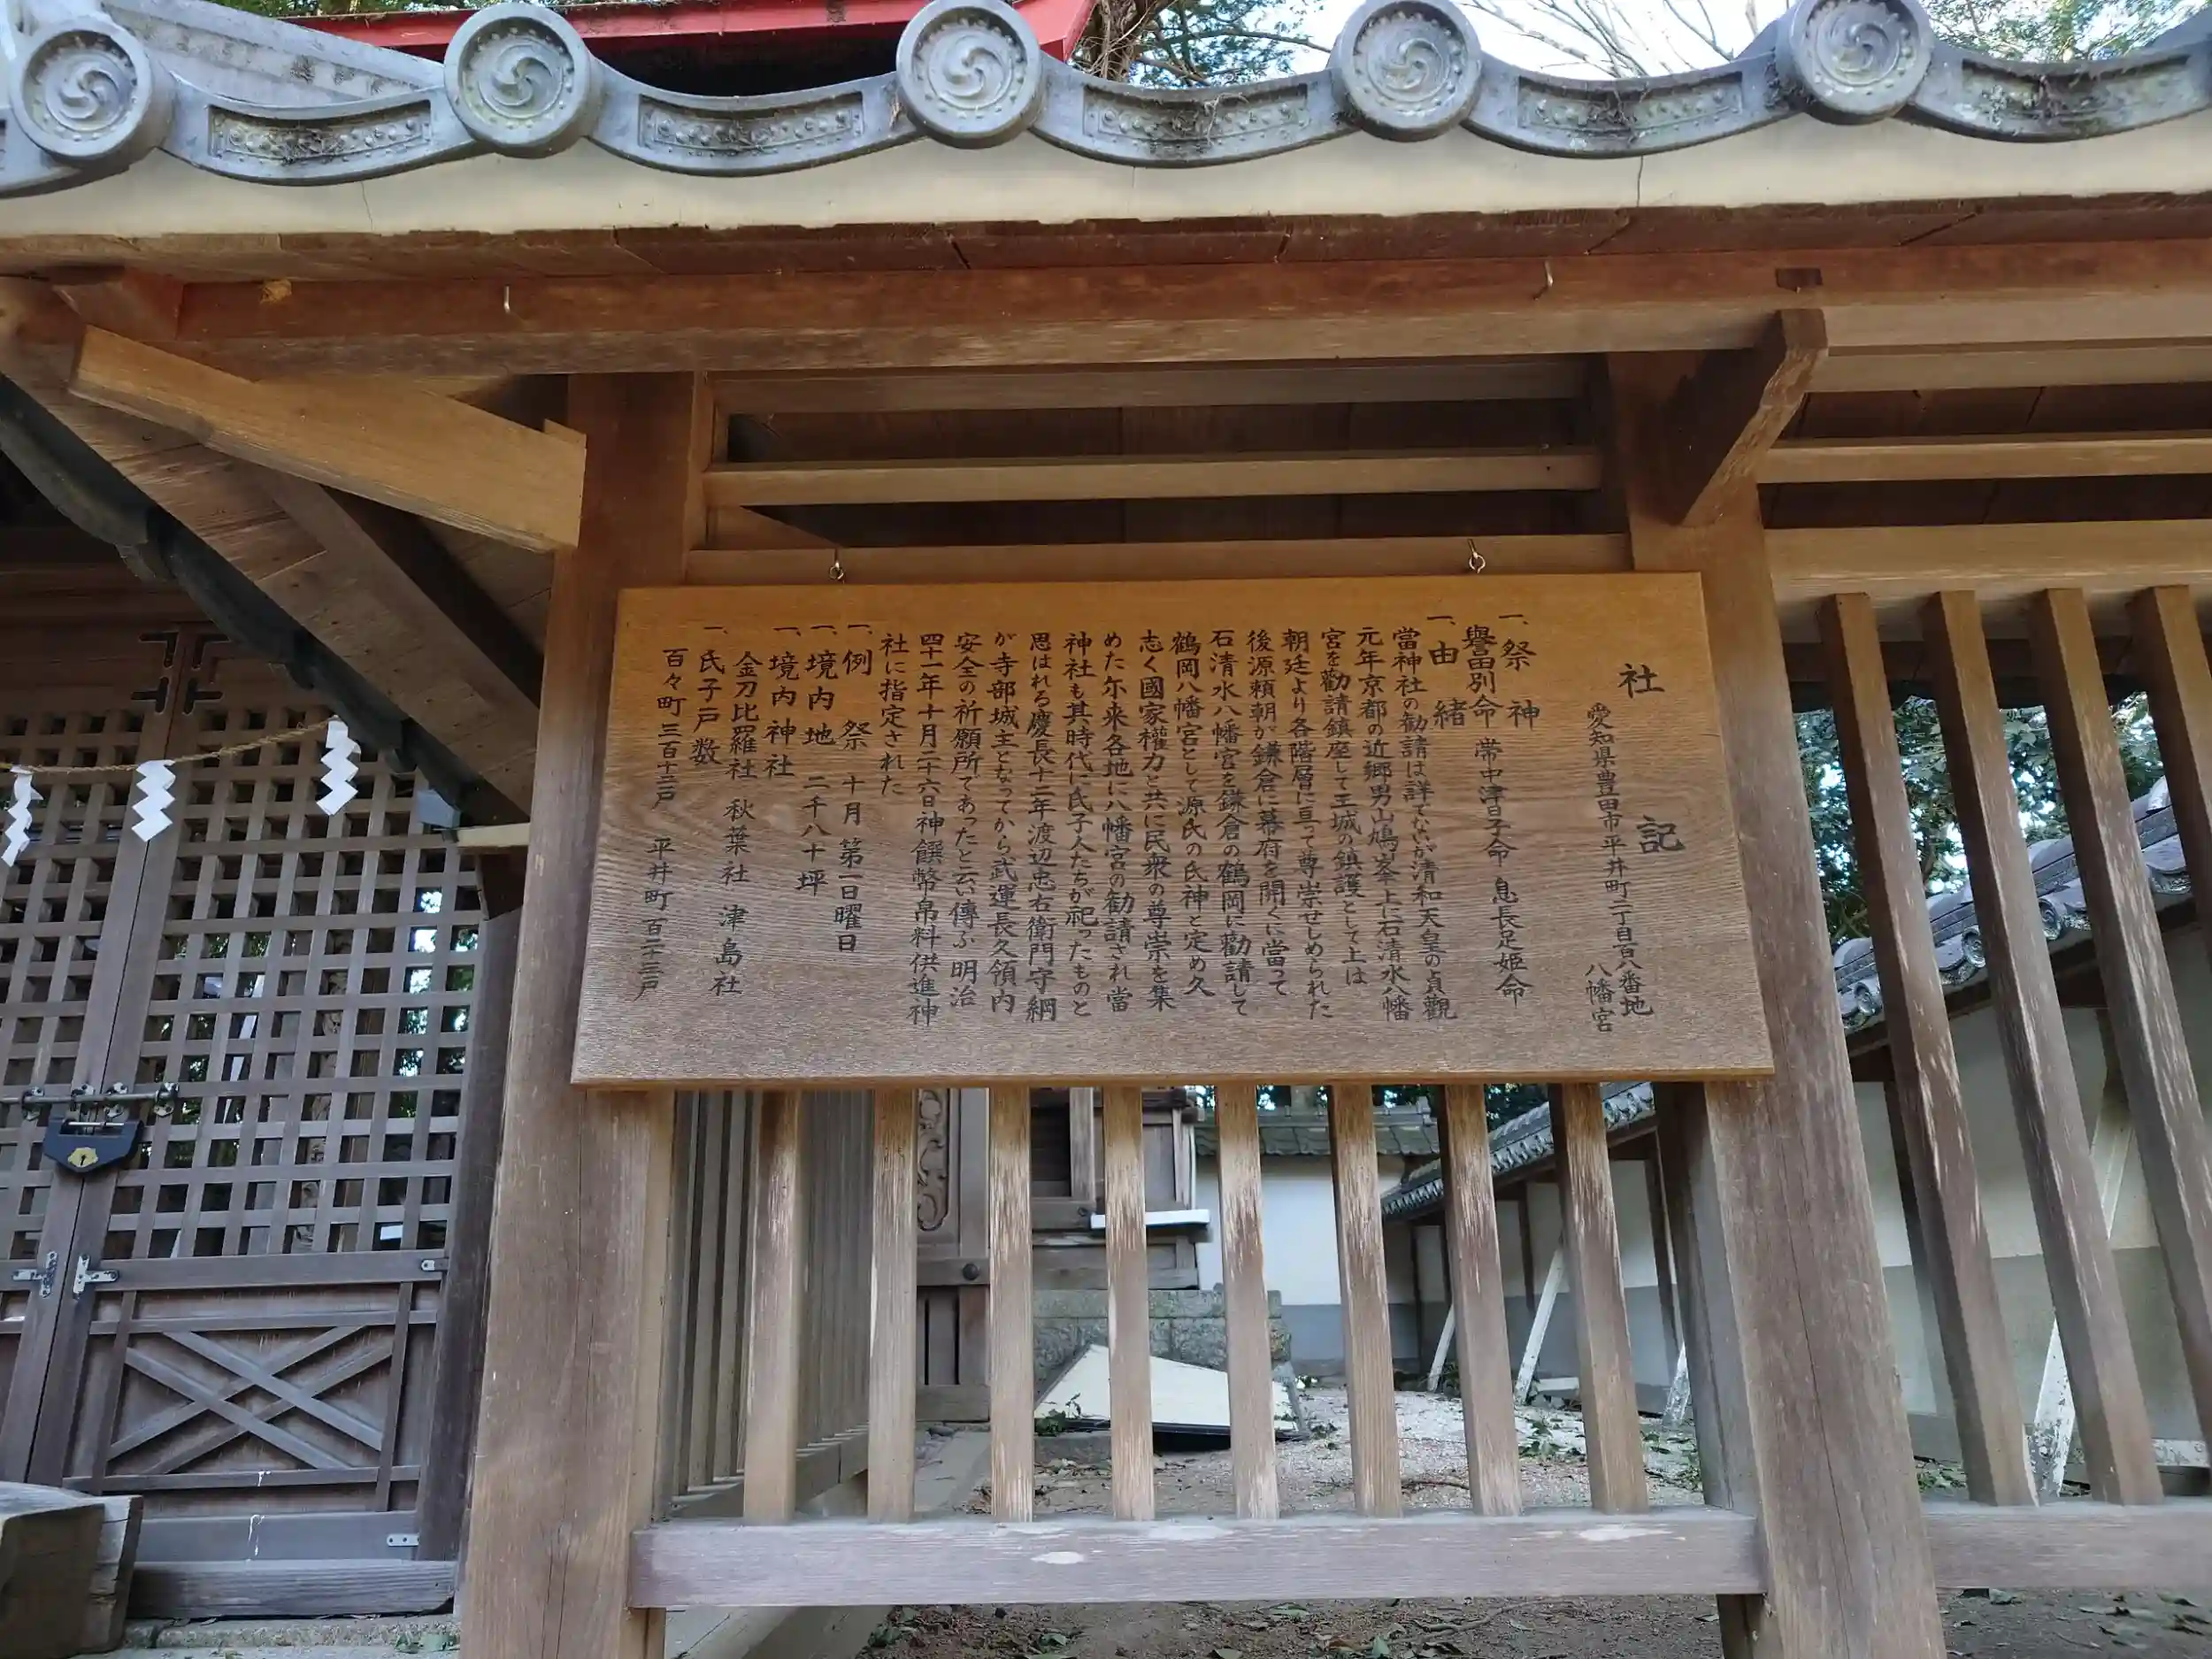 社記
愛知県豊田市平井町二丁目百八番地
八幡宮
一、祭神
譽田別命 帯中津日子命 息長足姫命
一、由緒
當神社の勧請は詳でないが清和天皇の貞觀
元年京都の近郷男山鳩ヶ峯上に石清水八幡
宮を勸請鎮座して王城の鎮護として上は
朝廷より各階層に亘って尊崇せしめられた
後源頼朝が鎌倉に幕府を開くに當って
石清水八幡宮を鎌倉の鶴岡に勸請して
鶴岡八幡宮として源氏の氏神と定め久
志く國家權力と共に民衆の尊崇を集
めた尓来各地に八幡宮の勧請され當
神社も其時代に氏子人たちが祀ったものと
思はれる慶長十二年渡辺忠右衛門守綱
が寺部城主となってから武運長久領内
安全の祈願所であったと云い傳ふ明治
四十一年十月二十六日神饌幣帛料供進神
社に指定された
一、例祭 十月第一日曜日
一、境内地 二千八十坪
一、境内神社
金刀比羅社 秋葉社 津島社
一、氏子戸数
百々町三百十二戸 平井町百二十三戸